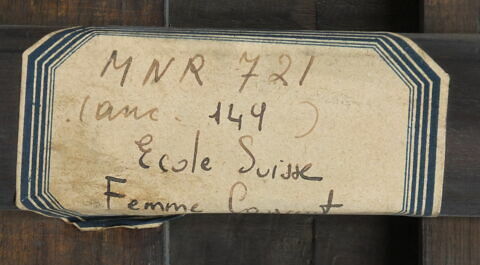 MNR 721
(anc. 149)
Ecole Suisse
Femme